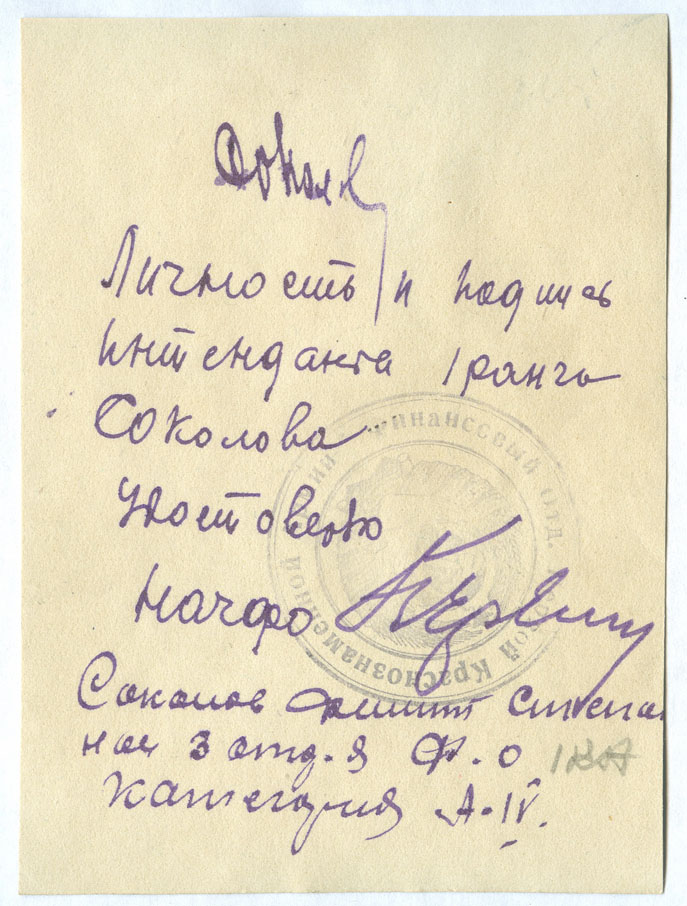 Соколов
Личность и подпись
Интенданта I ранга
Соколова
Удостоверяю
Начфо
Соколов Филипп Степан
нач 3 отд-я Ф.О 1КА
категория А-IV.
Финансовый отд. Краснознаменной